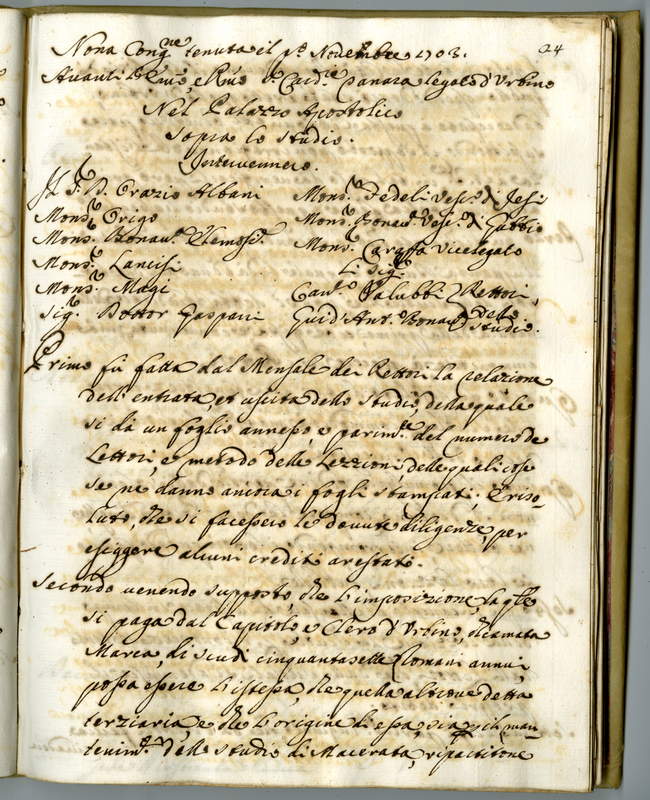 24
Nona Cong.ne tenuta il p.o Novembre 1703.
Avanti l'Em.o, e R.mo S.r Card.le Tanara legato d'Urbino
Nel Palazzo Apostolico
sopra lo studio.
Intervennero.
D. Orazio Albani
Mons.r Origo
Mons.r Bonav.a Elemos.e
Mons.r Lancisi
Mons.r Magi
Sig.r Dottor Gaspari
Mons.r Fedeli Vesc.o di Jesi
Mons.r Bonav.a Vesc.o di Gubbio
Mons.r Caraffa Vicelegato
Li Sig.ri
Cav.e Palubbi Rettori
Guid'Ant.o Bonav.a dello studio.
Primo fù fatta dal Mensale dei Rettori la relazione
dell'entrata, et uscita dello studio, della quale
si dà un foglio annesso, e parim.te del numero de
Lettori, e metodo delle Lezzioni, delle quali cose
se ne danno ancora i fogli stampati. E riso-
luto, che si facessero le dovute diligenze, per
esiggere alcuni crediti arestati.
Secondo venendo supposto, che l'imposizione, la q.le
si paga dal Capitolo, e Clero d'Urbino, chiamata
Marca, di scudi cinquantasette Romani annui,
possa essere l'istessa, che quella altrove detta
terziaria, e che l'origine di essa, sia p il man-
tenim.to dello studio di Macerata, ripartitone